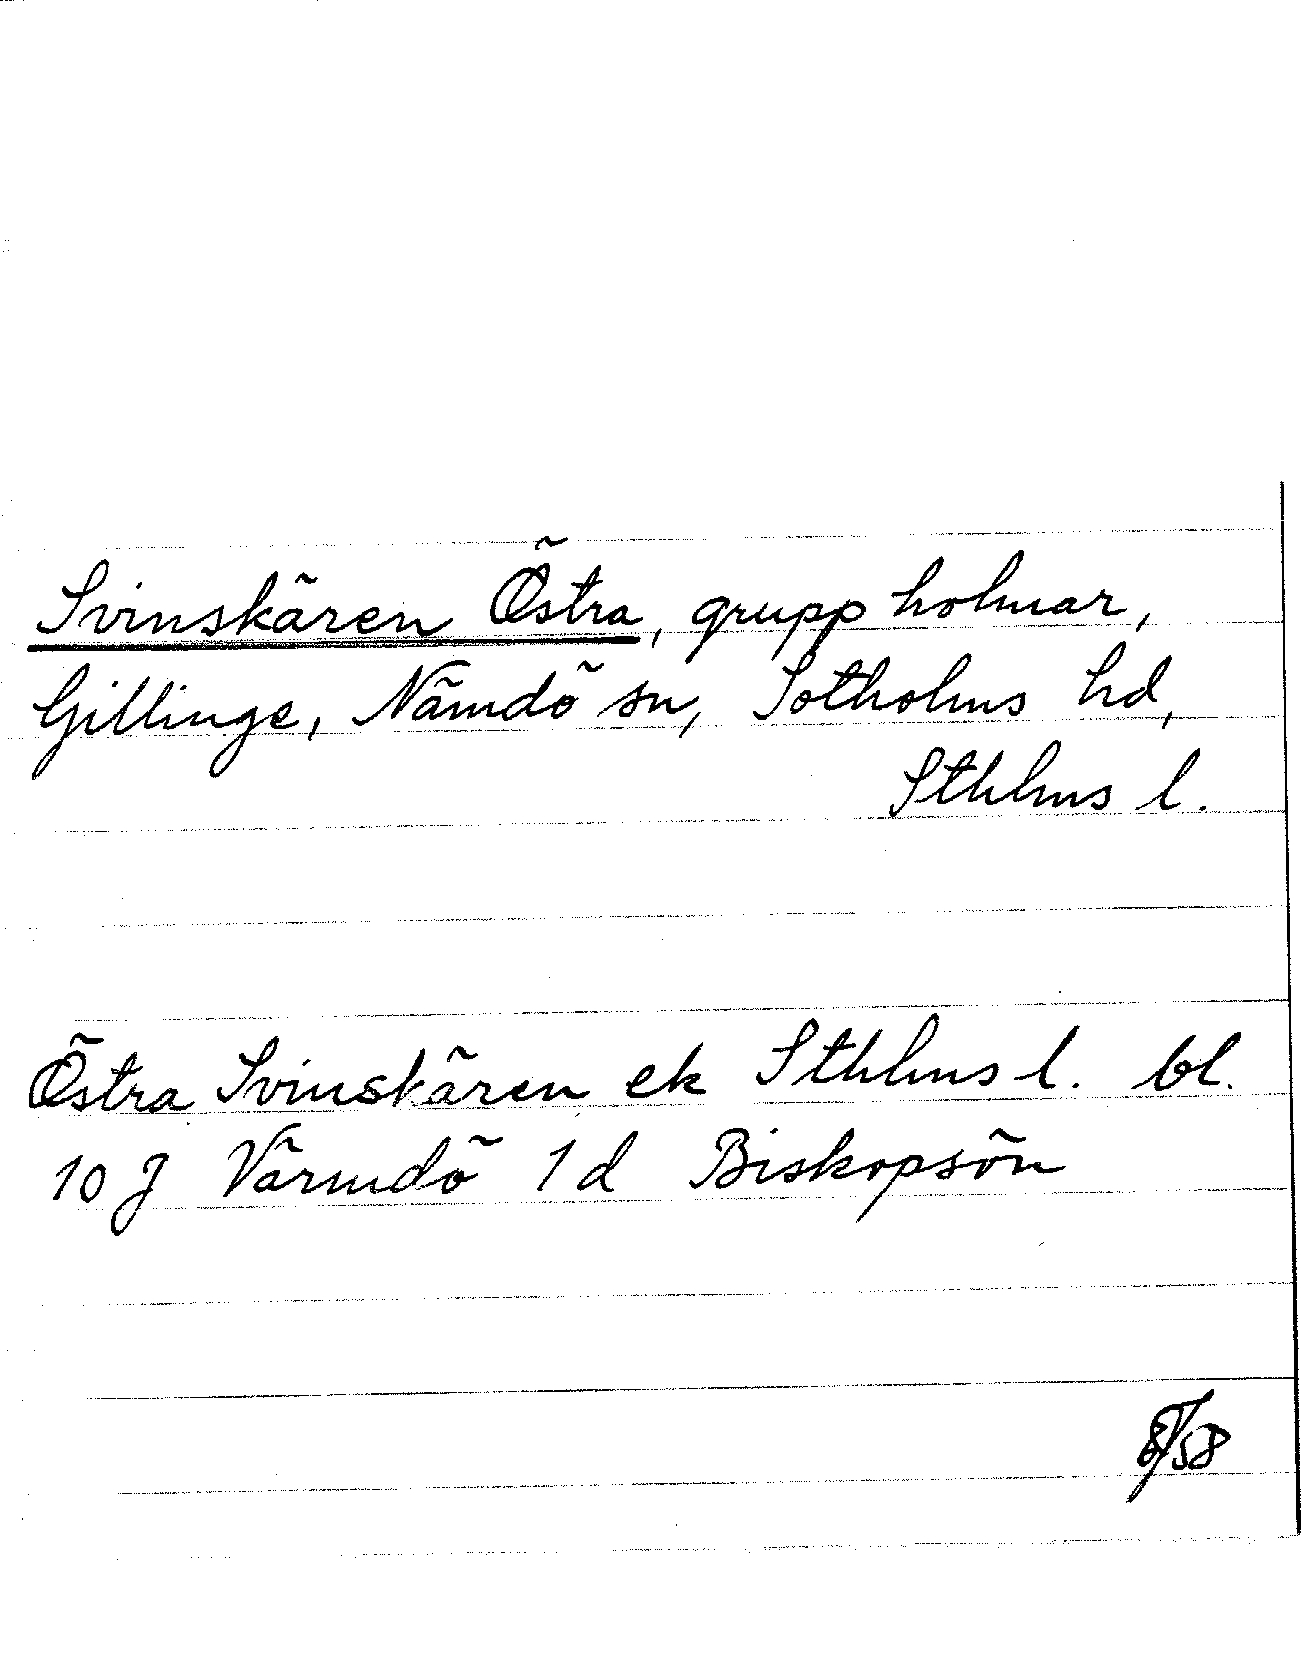 Svinskären Östra, grupp holmar,
Gillinge, Nämdö sn, Sotholms hd,
Sthlms l.
Östra Svinskären ek Sthlms l. bl.
10 J Värmdö 1d Biskopsön